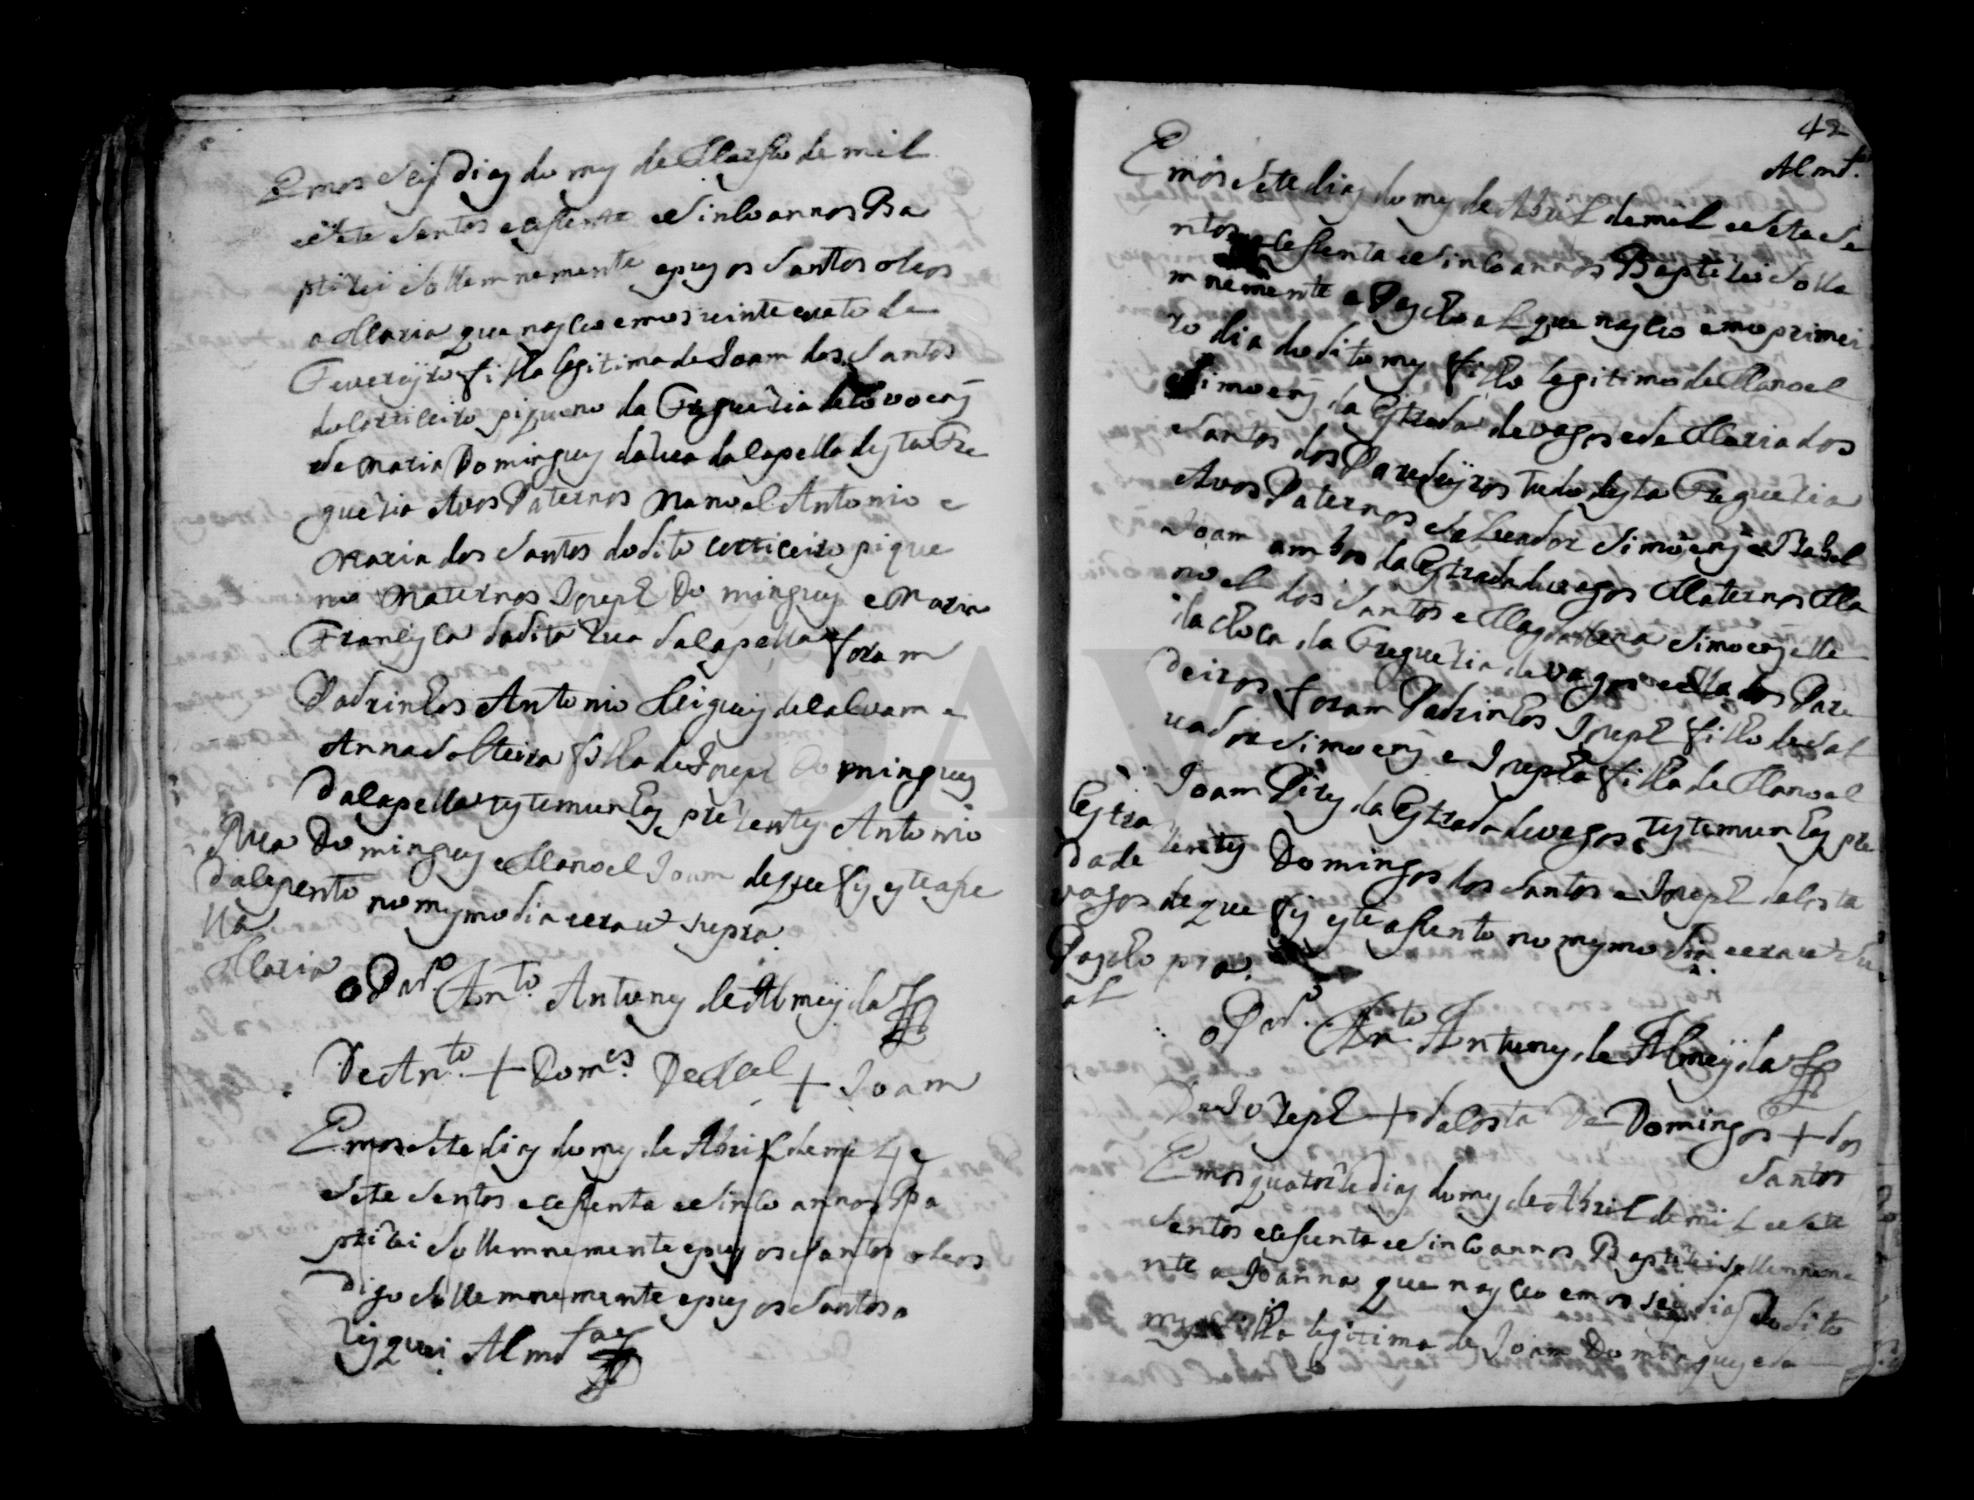 Emos seis dias do mes de Marsso de mil
e sete sentos e cessenta e sinco annos Ba
ptizei sollemnemente e pus os santos oleos
a Maria que nasceo emos vinte e oito de
Fevereyro filha legitima de Joam dos Santos
do Corticeiro piqueno da Freguezia de Covoens
e de Maria Domingues da Rua da Capella desta Fre
guezia Avos Paternos Manoel Antonio e
Maria dos Santos do dito Corticeiro pique
no Maternos Joseph Domingues e Maria
Francisca da dita Rua da Capella foram
Padrinhos Antonio de Calvam e
Anna solteira filha de Joseph Domingues
da Capella testemunhas prezentes Antonio
Domingues e Manoel Joam de que fis este asse
nto no mesmo dia era ut supra.
Rua
da Cape
lla
Maria
O Pad.ro Ant.o Antunes de Almeyda
De Ant.o + Dom.es De Mel + Joam
Emos sete dias do mes de Abril de mil e
sete sentos e cessenta e sinco annos Ba
ptizei sollemnemente e pus os santos oleos
digo sollemnemente e pus os santos o
Almd.a
42
Almd.a
Emos sete dias do mes de Abril de mil e sete se
ntos e cessenta e sinco annos Baptizei solle
mnemente a Paschoal que nasceo emo primei
ro dia do dito mes filho legitimo de Manoel
Simoens da Estrada de vagos e de Maria dos
Santos dos Paredeyros tudo desta Freguezia
Avos Paternos Salvador Simoens e Izabel
Joam ambos da Estrada de vagos Maternos Ma
noel dos Santos e Magdalena Simoens elle
da da Freguezia de vagos e ella dos Pare
deiros foram Padrinhos Joseph filho de Sal
vador Simoens e Josepha filha de Manoel
Joam Pires da Estrada de vagos testemunhas pre
zentes Domingos dos Santos e Joseph da Costa
de que fis este assento no mesmo dia era ut su
pra.
Estra
da de
vagos
Pascho
al
O Pad.ro Ant.o Antunes de Almeyda
De Joseph + da Costa De Domingos + dos
Santos
Emos quatorze dias do mes de Abril de mil e sete
sentos e cessenta e sinco annos Baptizei sollemneme
nte a Joanna que nasceo emos seis dias do dito
mes filha legitima de Joam Domingues da